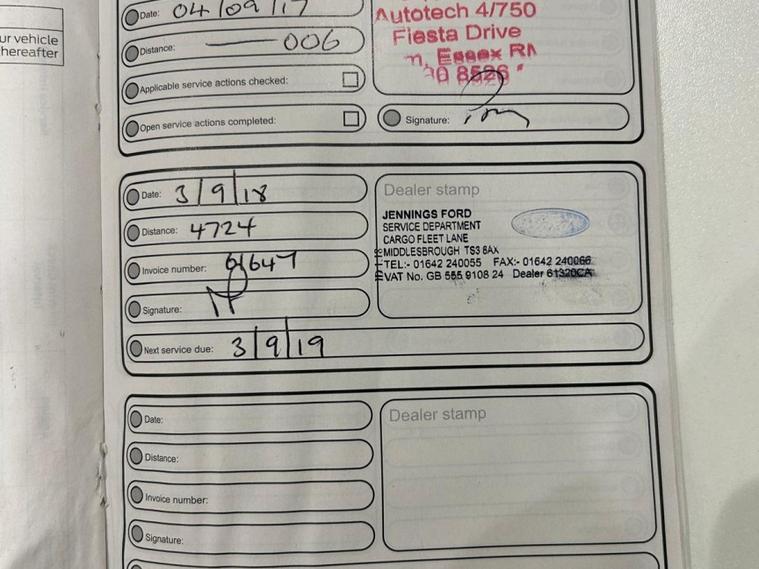 ur vehicle
hereafter
Date: 04/09/17
Distance: 006
Applicable service actions checked:
Open service actions completed:
Autotech 4/750
Fiesta Drive
Essex
8526
Signature:
Date: 3/9/18
Distance: 4724
Invoice number: 61647
Signature:
Next service due: 3/9/19
Dealer stamp
JENNINGS FORD
SERVICE DEPARTMENT
CARGO FLEET LANE
MIDDLESBROUGH TS3 8AX
TEL:- 01642 240055 FAX:- 01642 240066
VAT No. GB 555 9108 24 Dealer 61320CA
Date:
Distance:
Invoice number:
Signature:
Dealer stamp